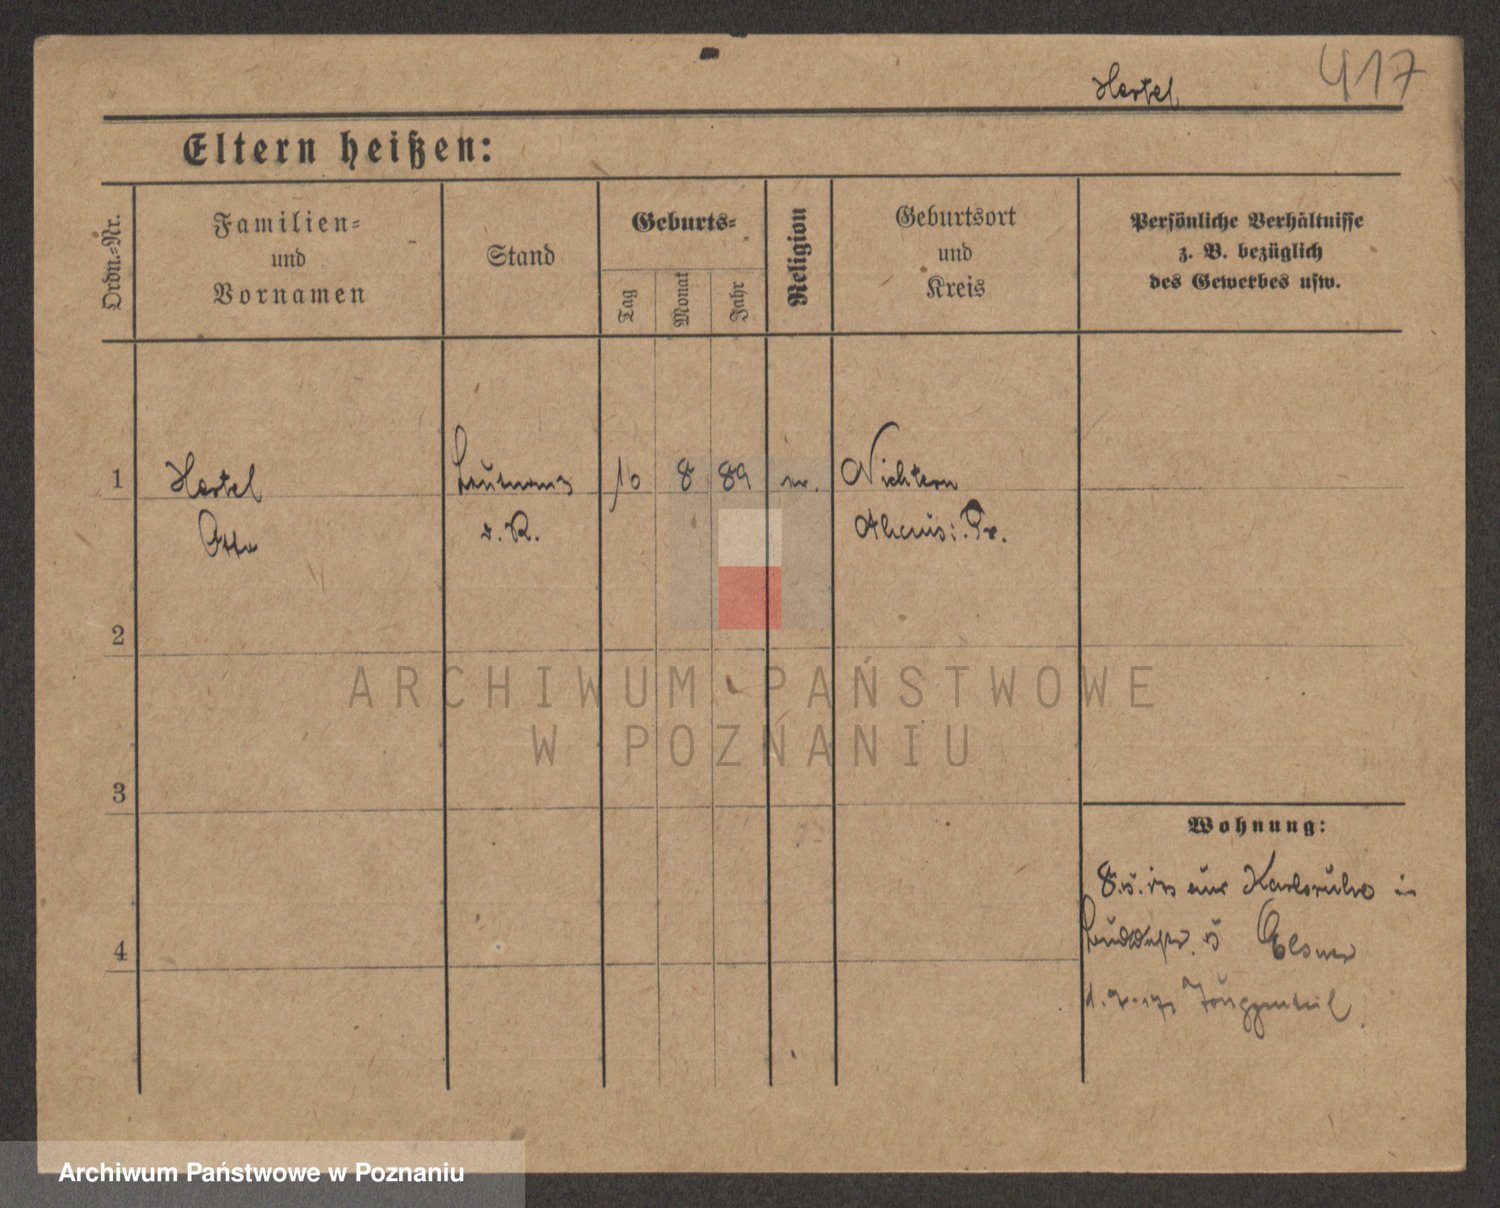 417
Hertel
Eltern heißen:
Ordn.-Nr.
Familien-
und
Vornamen
Stand
Geburts-
Tag
Monat
Jahr
Religion
Geburtsort
und
Kreis
Persönliche Verhältnisse
z. B. bezüglich
des Gewerbes usw.
1
Hertel
Otto
Leutnant
d. R.
10
8
89
ev.
Nichtern
2
ARCHIWUM PAŃSTWOWE
W POZNANIU
3
Wohnung:
aus Karlsruhe in
Elsner
4
Archiwum Państwowe w Poznaniu